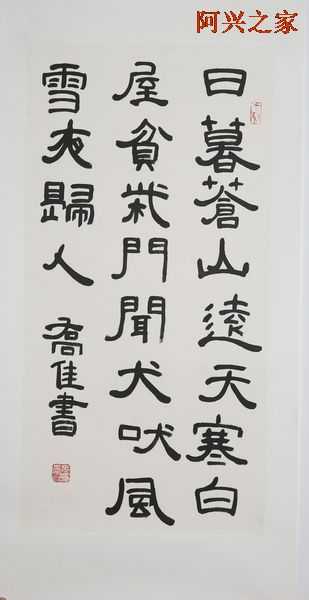 阿兴之家
日暮蒼山遠天寒白
屋貧柴門聞犬吠風
雪夜歸人
喬佳書